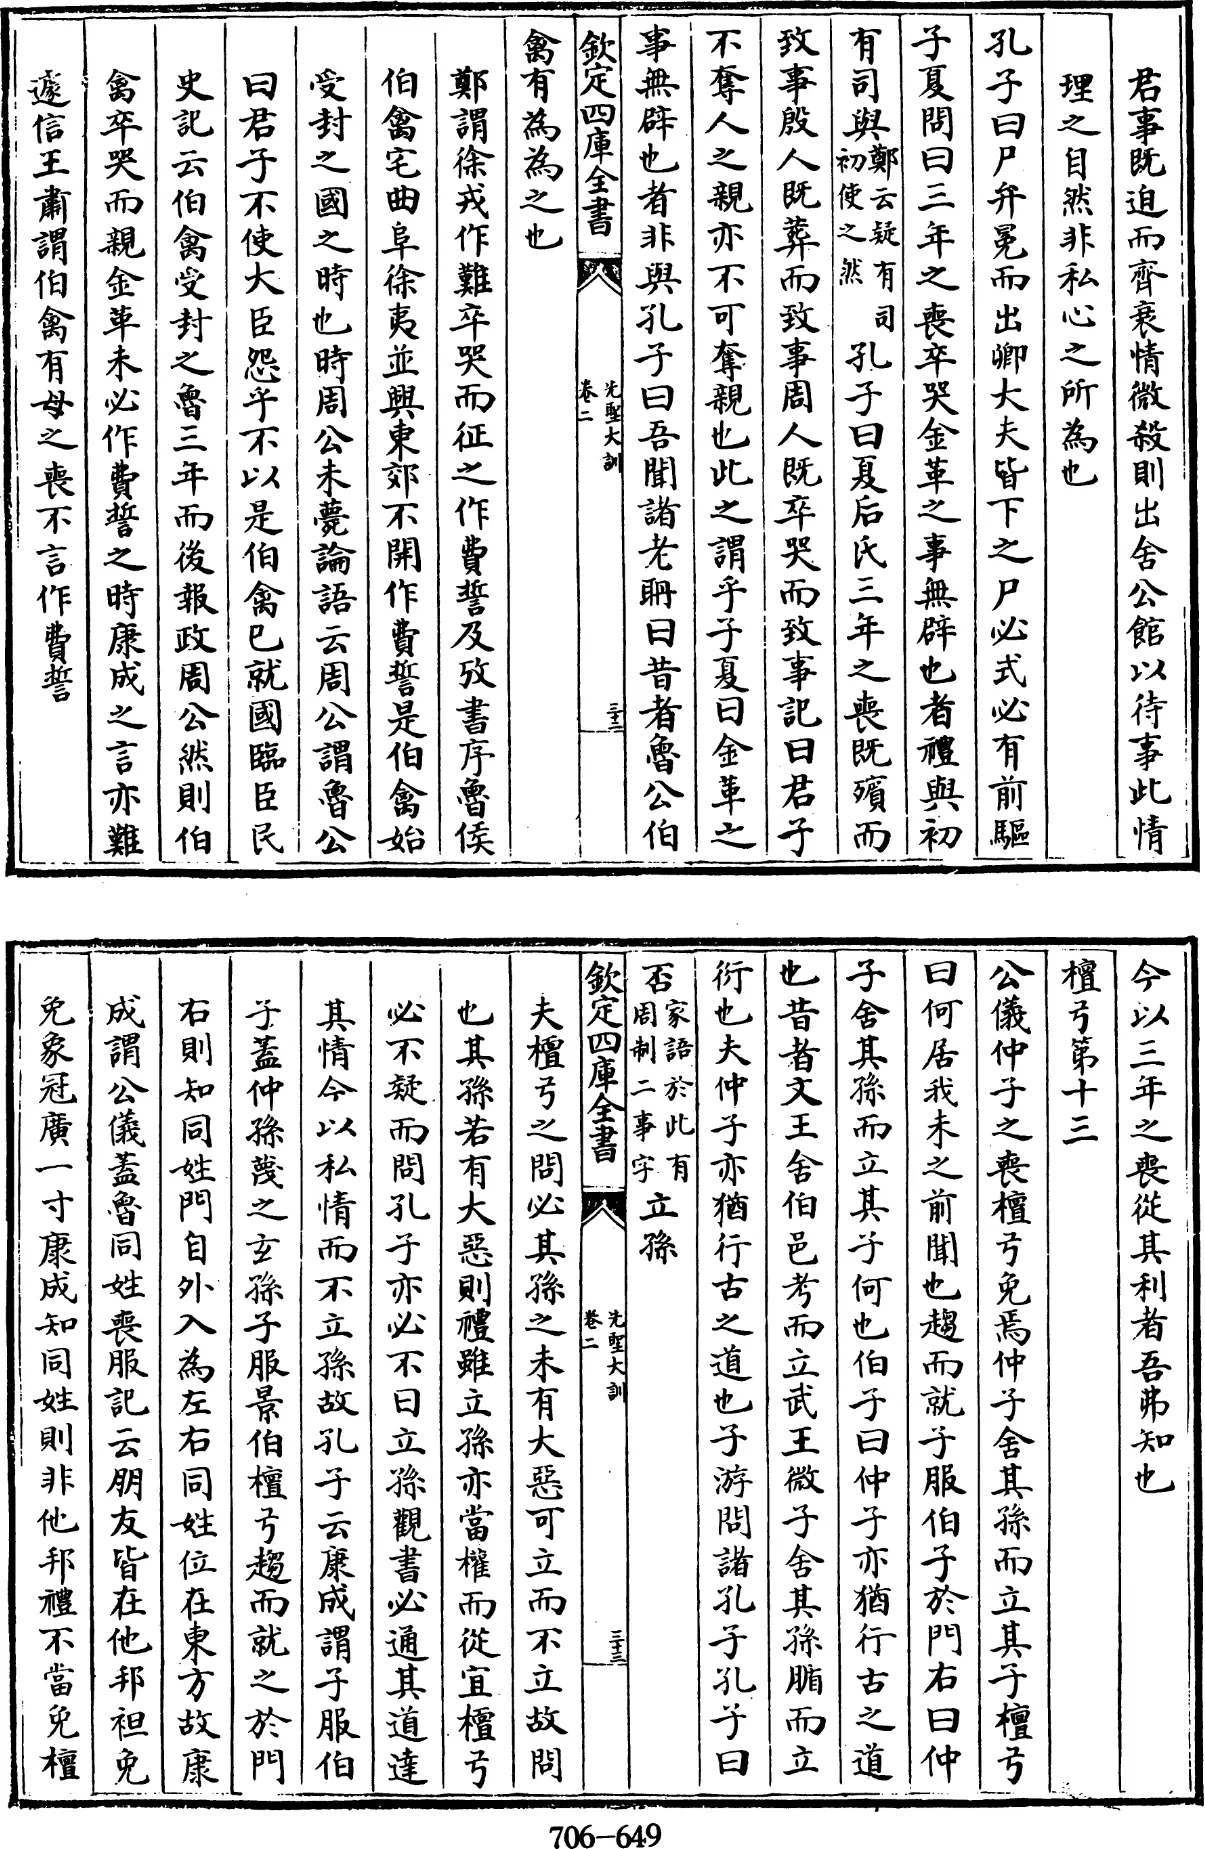 君事既迫而齊衰情微殺則出舍公館以待事此情
理之自然非私心之所為也
孔子曰尸弁冕而出卿大夫皆下之尸必式必有前驅
子夏問曰三年之喪卒哭金革之事無辟也者禮與初
有司與鄭云疑有司初使之然孔子曰夏后氏三年之喪既殯而
致事殷人既葬而致事周人既卒哭而致事記曰君子
不奪人之親亦不可奪親也此之謂乎子夏曰金革之
事無辟也者非與孔子曰吾聞諸老聃曰昔者魯公伯
欽定四庫全書
先聖大訓
卷二
三十二
禽有為為之也
鄭謂徐戎作難卒哭而征之作費誓及攷書序魯侯
伯禽宅曲阜徐夷並興東郊不開作費誓是伯禽始
受封之國之時也時周公未薨論語云周公謂魯公
曰君子不使大臣怨乎不以是伯禽已就國臨臣民
史記云伯禽受封之魯三年而後報政周公然則伯
禽卒哭而親金革未必作費誓之時康成之言亦難
遽信王肅謂伯禽有母之喪不言作費誓
今以三年之喪從其利者吾弗知也
檀弓第十三
公儀仲子之喪檀弓免焉仲子舍其孫而立其子檀弓
曰何居我未之前聞也趨而就子服伯子於門右曰仲
子舍其孫而立其子何也伯子曰仲子亦猶行古之道
也昔者文王舍伯邑考而立武王微子舍其孫腯而立
衍也夫仲子亦猶行古之道也子游問諸孔子孔子曰
否家語於此有周制二事字立孫
欽定四庫全書
先聖大訓
卷二
三十三
夫檀弓之問必其孫之未有大惡可立而不立故問
也其孫若有大惡則禮雖立孫亦當權而從宜檀弓
必不疑而問孔子亦必不曰立孫觀書必通其道達
其情今以私情而不立孫故孔子云康成謂子服伯
子蓋仲孫蔑之玄孫子服景伯檀弓趨而就之於門
右則知同姓門自外入為左右同姓位在東方故康
成謂公儀蓋魯同姓喪服記云朋友皆在他邦袒免
免象冠廣一寸康成知同姓則非他邦禮不當免檀
706-649